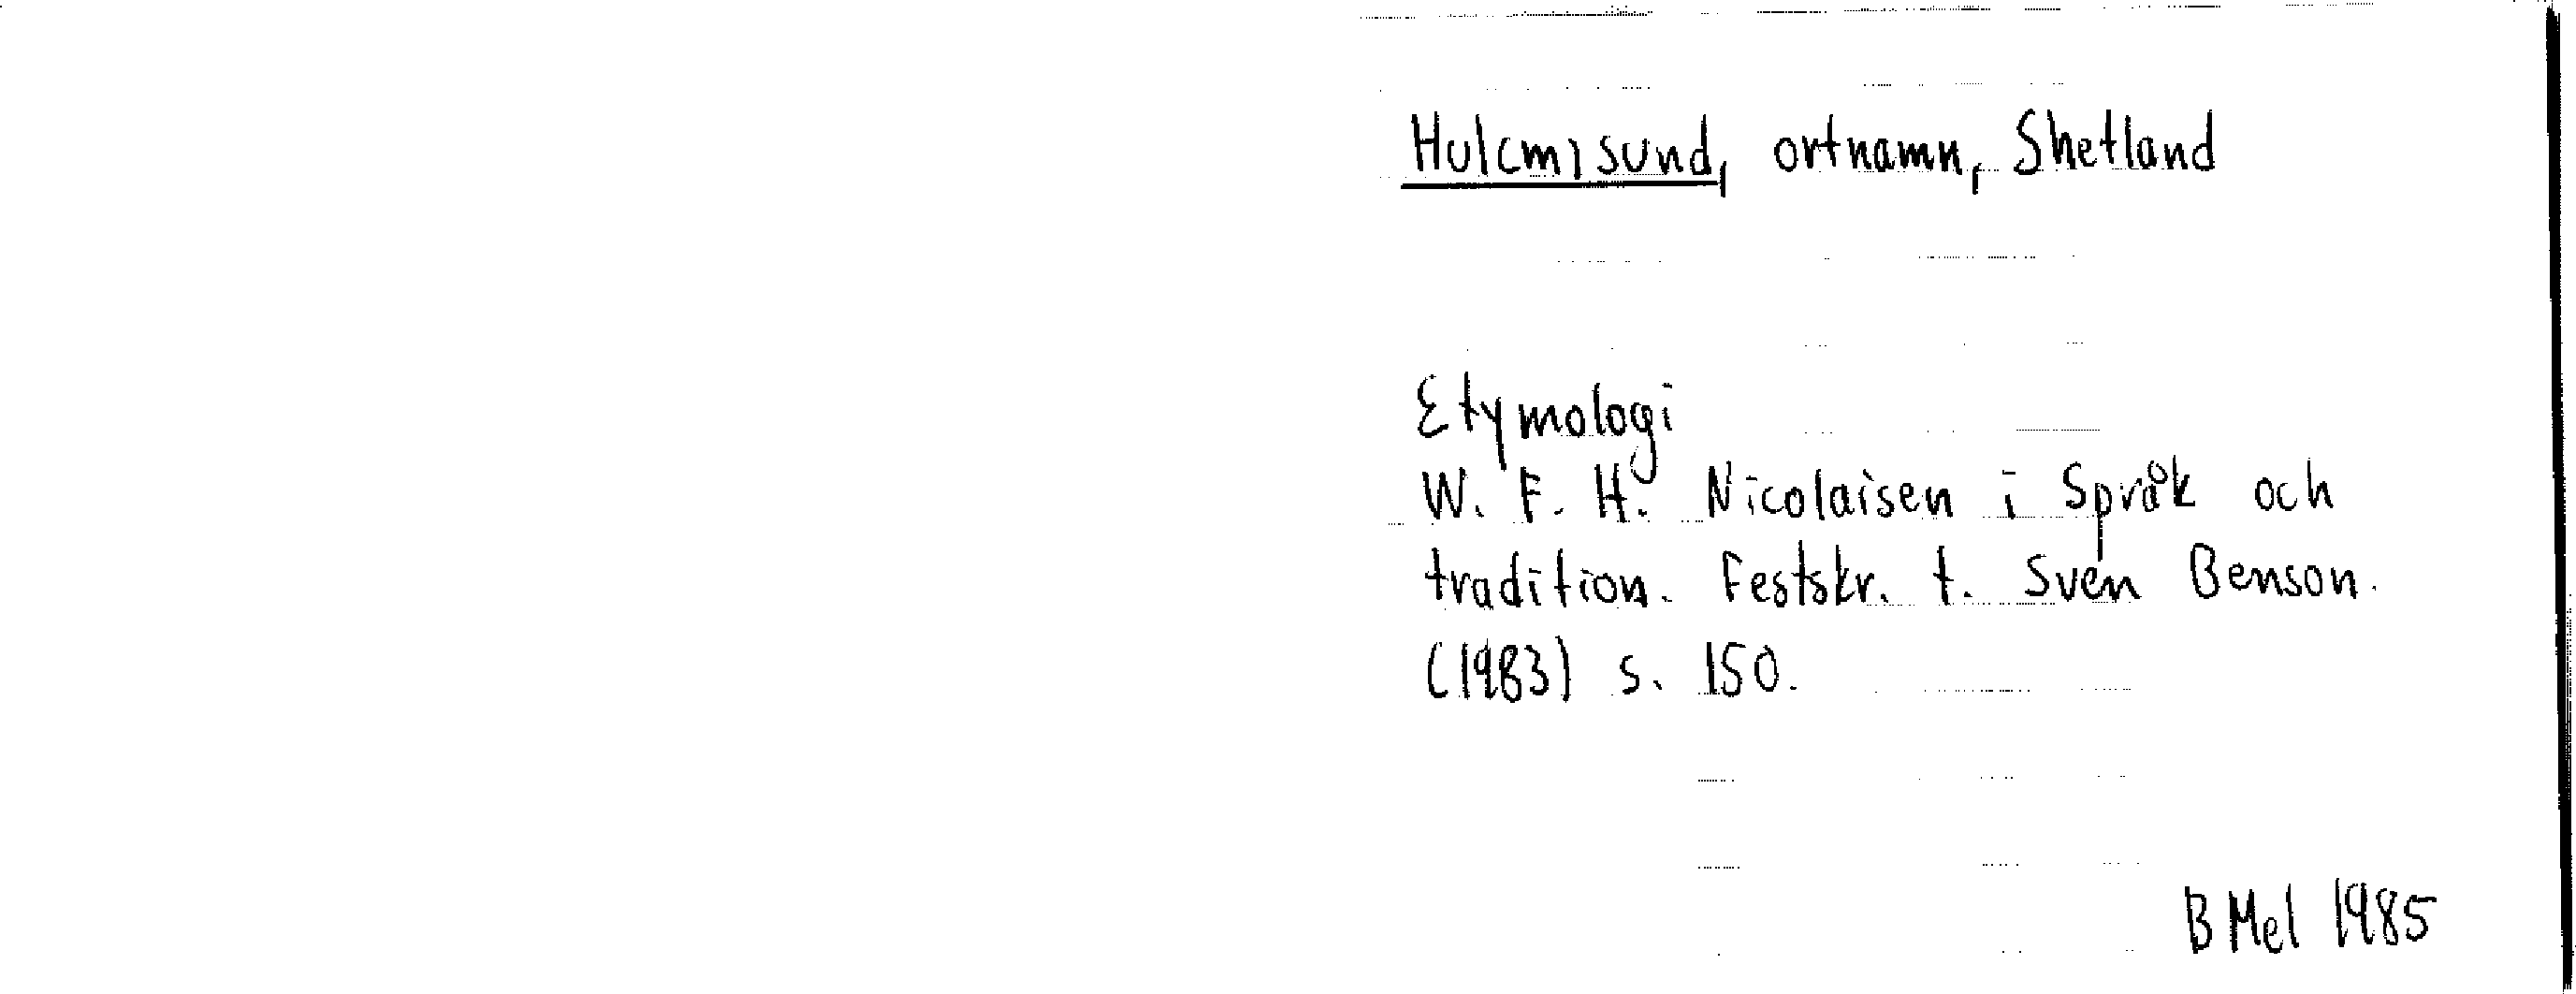 Hul(m)sund, ortnamn, Shetland
Etymologi
W. F. H. Nicolaisen i Språk och
tradition. Festskr. t. Sven Benson.
(1983) s. 150.
B Mel 1985